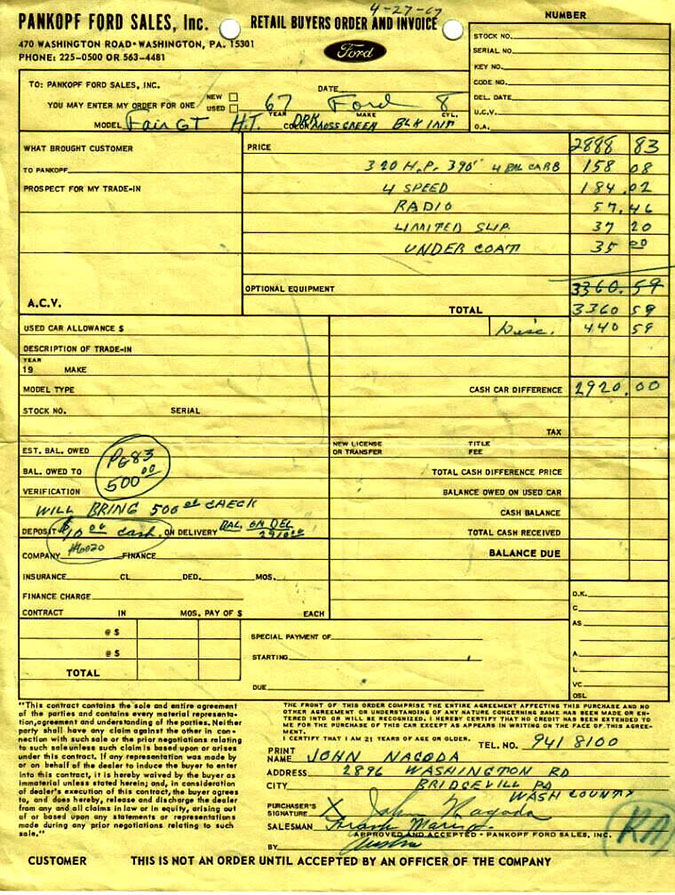 4-27-67
PANKOPF FORD SALES, Inc. RETAIL BUYERS ORDER AND INVOICE
470 WASHINGTON ROAD • WASHINGTON, PA. 15301
PHONE: 225-0500 OR 563-4481
Ford
NUMBER
STOCK NO.
SERIAL NO.
KEY NO.
CODE NO.
DEL. DATE
U.C.V.
O.A.
TO: PANKOPF FORD SALES, INC. DATE
YOU MAY ENTER MY ORDER FOR ONE NEW USED 67 YEAR Ford MAKE 8 CYL.
MODEL Fair GT H.T. COLOR DRK MOSS GREEN BLK INT
WHAT BROUGHT CUSTOMER
TO PANKOPF
PROSPECT FOR MY TRADE-IN
A.C.V.
PRICE 2888 83
320 H.P. 390" 4 BBL CARB 158 08
4 SPEED 184.02
RADIO 57.46
LIMITED SLIP 37 20
UNDER COAT 35 00
OPTIONAL EQUIPMENT 3360.59
TOTAL 3360 59
USED CAR ALLOWANCE $ Disc. 440 59
DESCRIPTION OF TRADE-IN
YEAR
19 MAKE
MODEL TYPE CASH CAR DIFFERENCE 2920.00
STOCK NO. SERIAL
TAX
EST. BAL. OWED PG83 NEW LICENSE OR TRANSFER TITLE FEE
BAL. OWED TO 500 00 TOTAL CASH DIFFERENCE PRICE
VERIFICATION BALANCE OWED ON USED CAR
WILL BRING 500 00 CHECK CASH BALANCE
DEPOSIT $10 00 cash ON DELIVERY BAL. ON DEL 2910.00 TOTAL CASH RECEIVED
COMPANY #6020 FINANCE BALANCE DUE
INSURANCE CL DED. MOS.
FINANCE CHARGE
CONTRACT IN MOS. PAY OF $ EACH
@ $
@ $
TOTAL
SPECIAL PAYMENT OF
STARTING
DUE
D.K.
C
AS
A
L
VC
OSL
"This contract contains the sole and entire agreement
of the parties and contains every material representa-
tion, agreement and understanding of the parties. Neither
party shall have any claim against the other in con-
nection with such sale or the prior negotiations relating
to such sale unless such claim is based upon or arises
under this contract. If any representation was made by
or on behalf of the dealer to induce the buyer to enter
into this contract, it is hereby waived by the buyer as
immaterial unless stated herein; and, in consideration
of dealer's execution of this contract, the buyer agrees
to, and does hereby, release and discharge the dealer
from any and all claims in law or in equity, arising out
of or based upon any statements or representations
made during any prior negotiations relating to such
sale."
THE FRONT OF THIS ORDER COMPRISE THE ENTIRE AGREEMENT AFFECTING THIS PURCHASE AND NO
OTHER AGREEMENT OR UNDERSTANDING OF ANY NATURE CONCERNING SAME HAS BEEN MADE OR EN-
TERED INTO OR WILL BE RECOGNIZED. I HEREBY CERTIFY THAT NO CREDIT HAS BEEN EXTENDED TO
ME FOR THE PURCHASE OF THIS CAR EXCEPT AS APPEARS IN WRITING ON THE FACE OF THIS AGREE-
MENT.
I CERTIFY THAT I AM 21 YEARS OF AGE OR OLDER. TEL. NO. 941 8100
PRINT NAME JOHN NAGODA
ADDRESS 2896 WASHINGTON RD
CITY BRIDGEVILL PA
WASH COUNTY
PURCHASER'S SIGNATURE X John Nagoda
SALESMAN Frank
APPROVED AND ACCEPTED - PANKOPF FORD SALES, INC.
BY
CUSTOMER THIS IS NOT AN ORDER UNTIL ACCEPTED BY AN OFFICER OF THE COMPANY